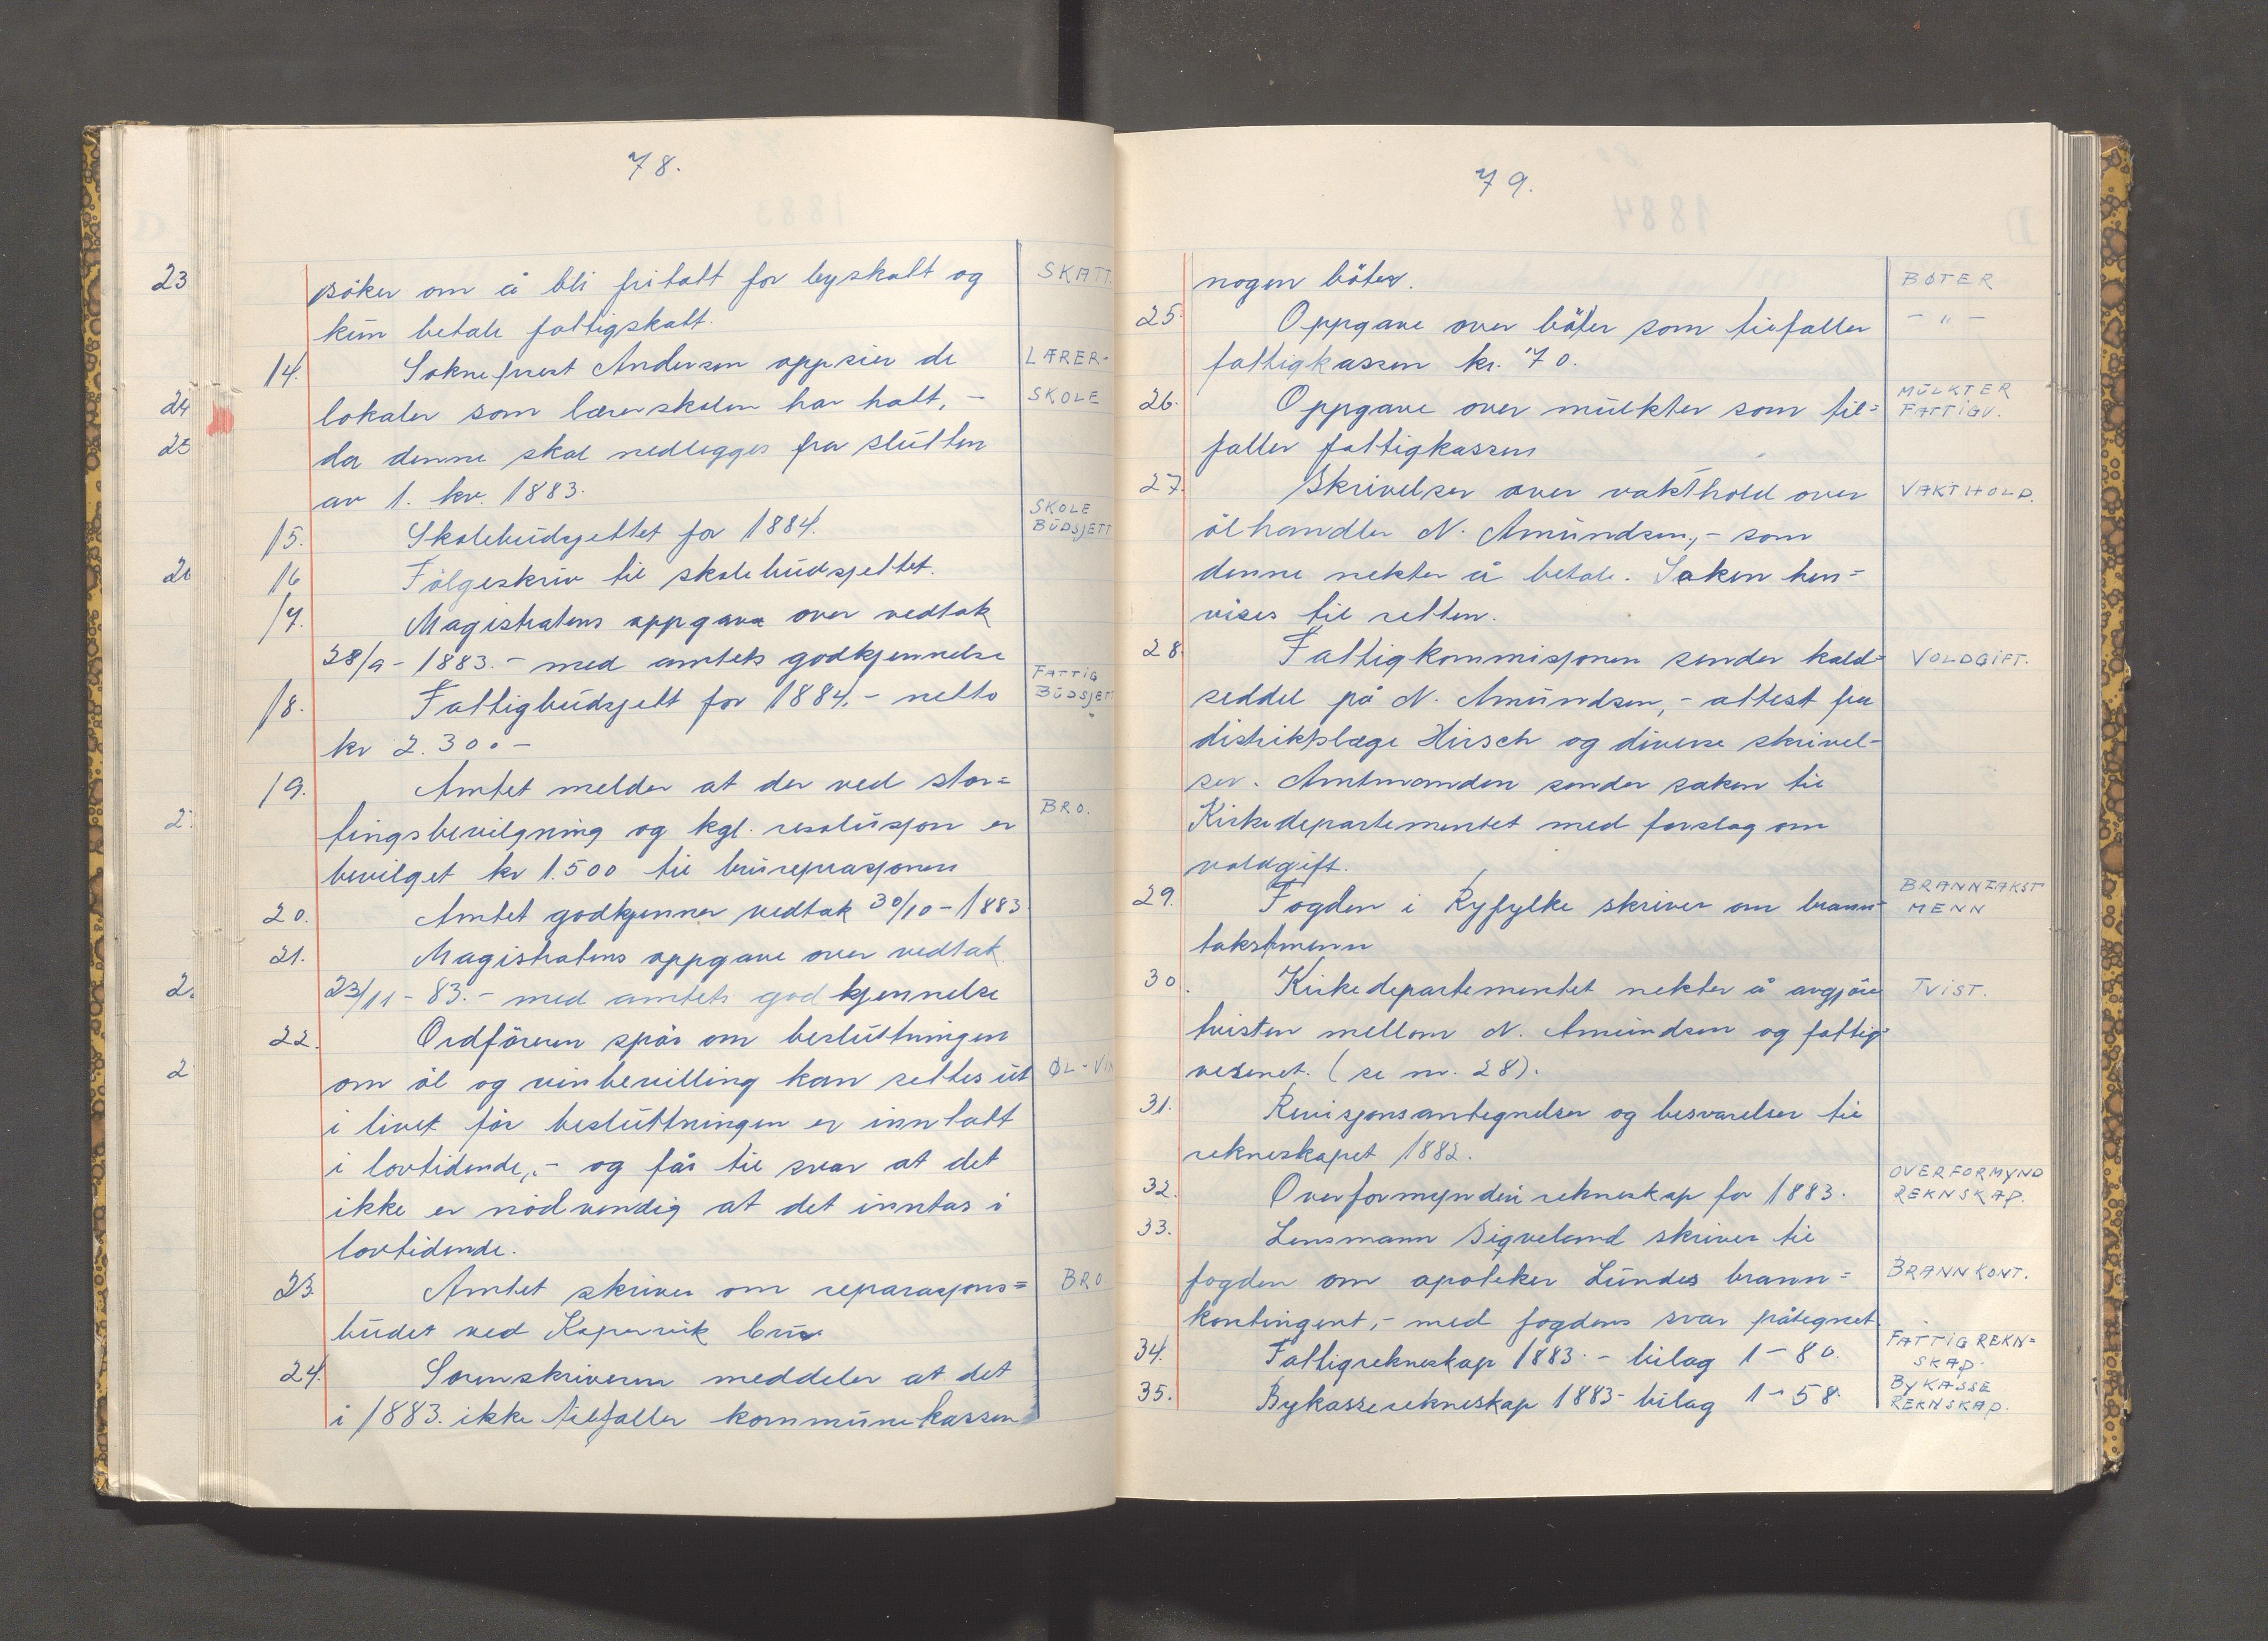 78.
söker om å bli fritatt for byskatt og SKATT.
kun betale fattigskatt.
14. Sokneprest Andersen oppsier de LÆRER-
lokaler som lærerskolen har hatt, - SKOLE
da denne skal nedlegges fra slutten
av 1. kv. 1883.
15. Skolebudsjettet for 1884. SKOLE BUDSJETT
16 Fölgeskriv til skolebudsjettet.
17. Magistratens oppgave over vedtak
28/9 - 1883. - med amtets godkjennelse
18. Fattigbudsjett for 1884, - netto FATTIG BUDSJETT
kr 2.300 -
19. Amtet melder at der ved stor=
tingsbevilgning og kgl. resolusjon er BRO.
bevilget kr 1.500 til brureprasjonen
20. Amtet godkjenner vedtak 30/10 - 1883
21. Magistratens oppgave over vedtak
23/11 - 83. - med amtets godkjennelse
22. Ordföreren spör om besluttningen
om öl og vinbevilling kan settes ut ØL - VIN
i livet för besluttningen er inntatt
i lovtidende, - og får til svar at det
ikke er nödvendig at det inntas i
lovtidende.
23. Amtet skriver om reparasjons= BRO
budet ved Kopervik bru
24. Sorenskriveren meddeler at det
i 1883. ikke tilfaller kommunekassen
23
24
25
26
2
2
2
79.
nogen böter. BØTER
25. Oppgave over böter som tilfaller - " -
fattigkassen kr. 70.
26. Oppgave over mulkter som til= MULKTER FATTIGV.
faller fattigkassen
27. Skrivelser over vakthold over VAKTHOLD.
ölhandler N. Amundsen, - som
denne nekter å betale. Saken hen=
vises til retten.
28. Fattigkommisjonen sender kald= VOLDGIFT.
seddel på N. Amundsen, - attest fra
distriktslæge Hirsch og diverse skrivel-
ser. Amtmanden sender saken til
Kirkedepartementet med forslag om
voldgift.
29. Fogden i Ryfylke skriver om brann= BRANNTAKST MENN
takstmenn
30. Kirkedepartementet nekter å avgjöre TVIST.
tvisten mellom N. Amundsen og fattig=
vesenet. (se nr. 28).
31. Revisjonsantegnelser og besvarelser til
rekneskapet 1882.
32. Overformynderirekneskap for 1883. OVERFORMYND REKNSKAP.
33. Lensmann Sigveland skriver til
fogden om apoteker Lundes brann= BRANNKONT.
kontingent, - med fogdens svar påtegnet.
34. Fattigrekneskap 1883. - bilag 1 - 80. FATTIGREKN= SKAP.
35. Bykasserekneskap 1883 - bilag 1 - 58. BYKASSE REKNSKAP.